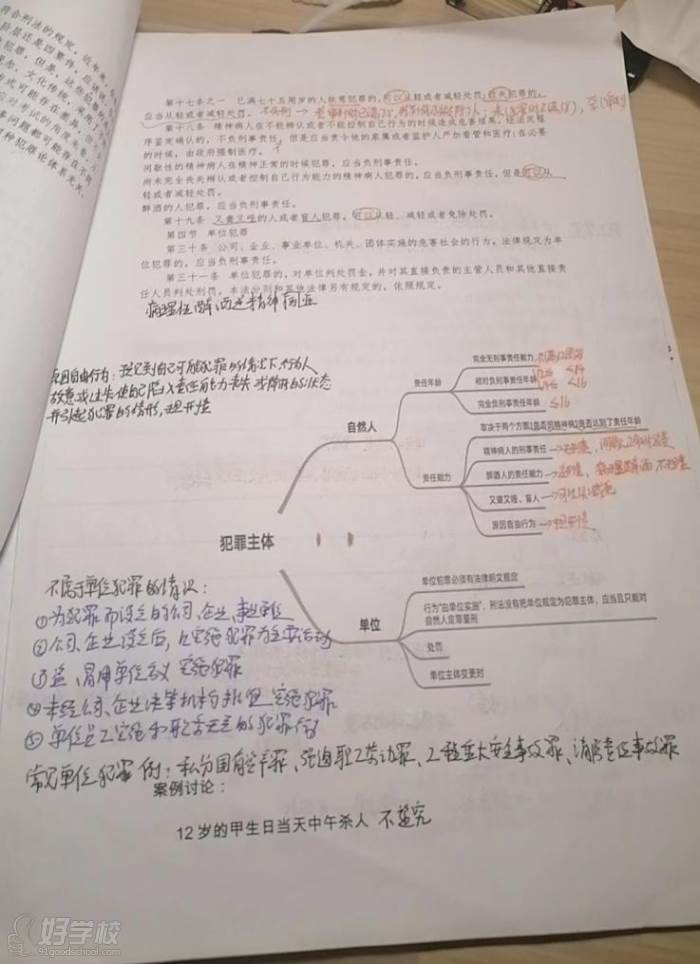 符合刑法的规定。近年来，
阶层还是四要件，应该说，
犯罪，但是，
文化传统，采用了
式可能存在差异，
对考试的角度来看，
事问题都可能存在不同
种犯罪论体系无关。
第十七条之一 已满七十五周岁的人故意犯罪的，可以从轻或者减轻处罚；过失犯罪的，
应当从轻或者减轻处罚。
第十八条 精神病人在不能辨认或者不能控制自己行为的时候造成危害结果，经法定程
序鉴定确认的，不负刑事责任，但是应当责令他的家属或者监护人严加看管和医疗；在必要
的时候，由政府强制医疗。
间歇性的精神病人在精神正常的时候犯罪，应当负刑事责任。
尚未完全丧失辨认或者控制自己行为能力的精神病人犯罪的，应当负刑事责任，但是可以从
轻或者减轻处罚。
醉酒的人犯罪，应当负刑事责任。
第十九条 又聋又哑的人或者盲人犯罪，可以从轻、减轻或者免除处罚。
第四节 单位犯罪
第三十条 公司、企业、事业单位、机关、团体实施的危害社会的行为，法律规定为单
位犯罪的，应当负刑事责任。
第三十一条 单位犯罪的，对单位判处罚金，并对其直接负责的主管人员和其他直接责
任人员判处刑罚。本法分则和其他法律另有规定的，依照规定。
病理性醉酒
精神病
原因自由行为：
故意或过失使自己陷入责任能力丧失或
并引起犯罪的情形，担开责
犯罪主体
自然人
责任年龄
完全无刑事责任能力
相对负刑事责任年龄 12≤ <14
14≤ <16
完全负刑事责任年龄 ≤16
责任能力
取决于两个方面1是否因精神病2是否达到了责任年龄
精神病人的刑事责任
醉酒人的责任能力
又聋又哑、盲人
原因自由行为
单位
单位犯罪必须有法律明文规定
行为“由单位实施”，刑法没有把单位规定为犯罪主体，应当且只能对
自然人定罪量刑
处罚
单位主体变更时
不属于单位犯罪的情况：
①为犯罪而设立的公司、企业、事业单位
②公司、企业设立后，以实施犯罪为主要活动
③盗、冒用单位名义实施犯罪
④未经公司、企业决策机构批准，实施犯罪
⑤单位员工实施和职务无关的犯罪行为
常见单位犯罪 例：私分国有资产罪、强迫职工劳动罪、工程重大安全事故罪、消防责任事故罪
案例讨论：
12岁的甲生日当天中午杀人 不追究
好学校
91goodschool.com